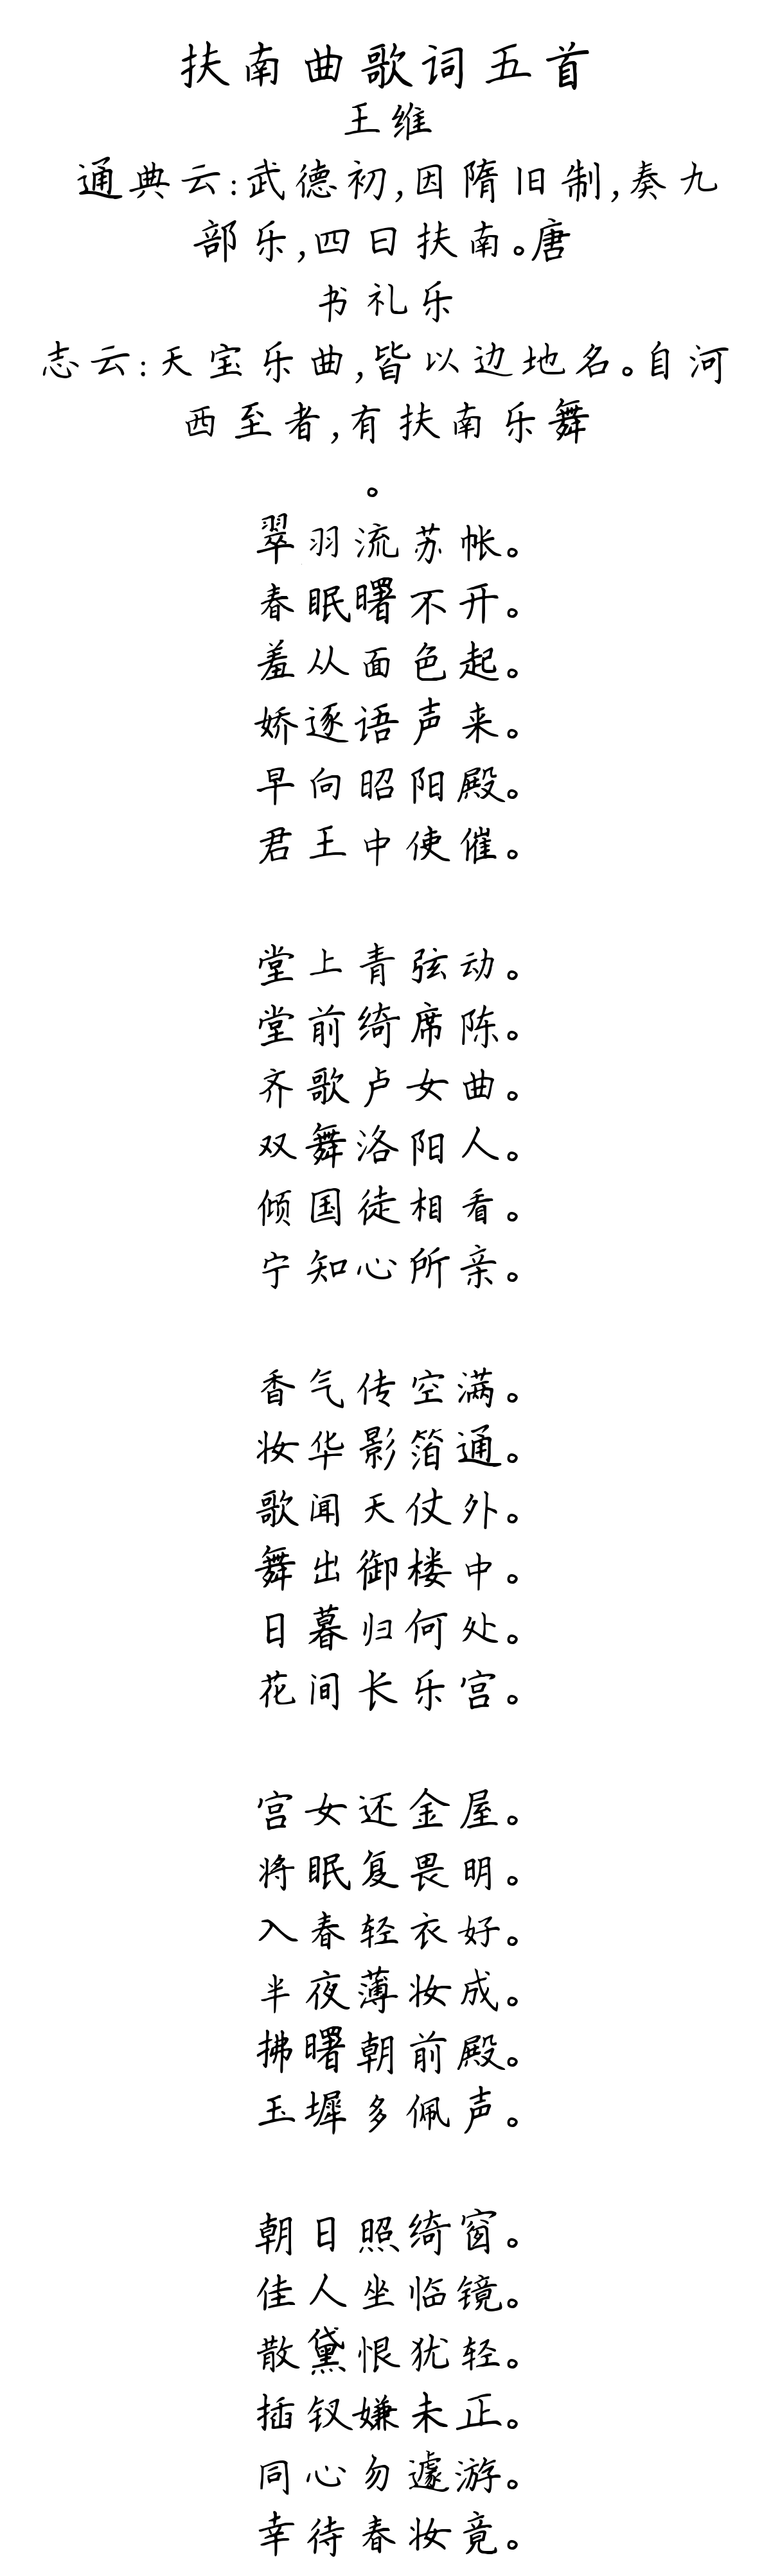 扶南曲歌词五首
王维
通典云:武德初,因隋旧制,奏九
部乐,四曰扶南。唐
书礼乐
志云:天宝乐曲,皆以边地名。自河
西至者,有扶南乐舞
。
翠羽流苏帐。
春眠曙不开。
羞从面色起。
娇逐语声来。
早向昭阳殿。
君王中使催。
堂上青弦动。
堂前绮席陈。
齐歌卢女曲。
双舞洛阳人。
倾国徒相看。
宁知心所亲。
香气传空满。
妆华影箔通。
歌闻天仗外。
舞出御楼中。
日暮归何处。
花间长乐宫。
宫女还金屋。
将眠复畏明。
入春轻衣好。
半夜薄妆成。
拂曙朝前殿。
玉墀多佩声。
朝日照绮窗。
佳人坐临镜。
散黛恨犹轻。
插钗嫌未正。
同心勿遽游。
幸待春妆竟。